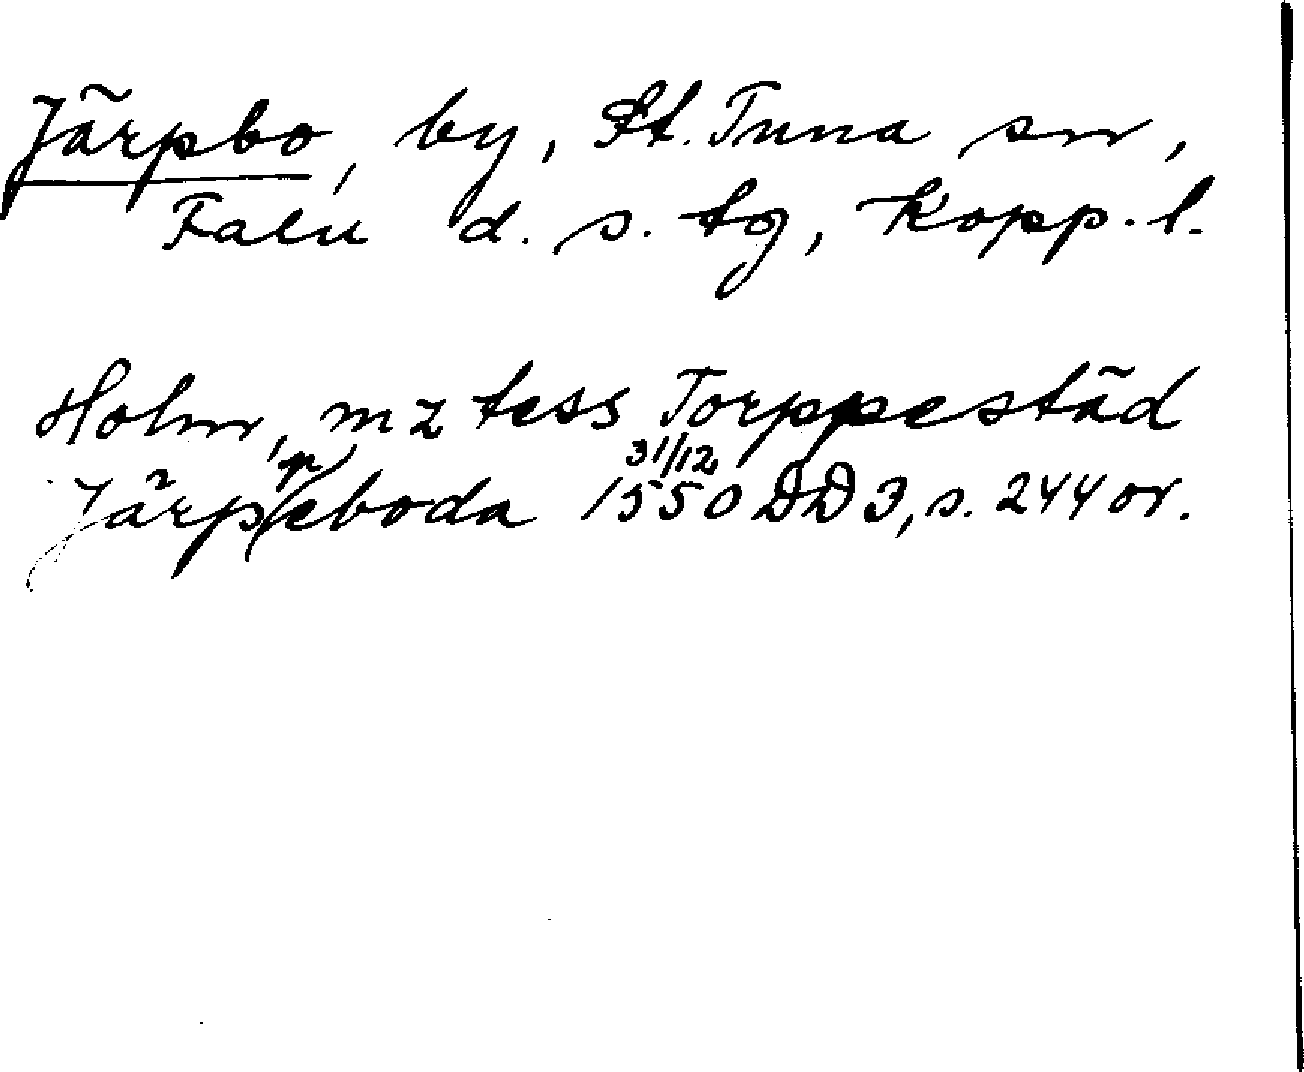 Järpbo, by, St. Tuna sn,
Falu d. s. tg, Kopp. l.
Holm, mz tess Torppestäd
Järppeboda 31/12 1550 DD 3, s. 244 or.